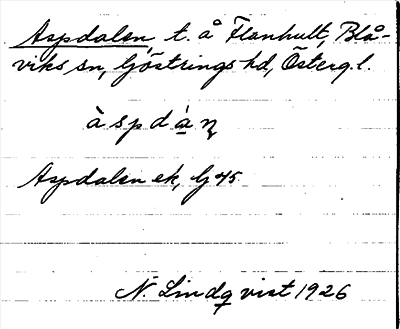 Aspdalen, t. å Flanhult, Blå-
viks sn, Göstrings hd, Österg. l.
àspdáṇ
Aspdalen ek, G 45
N. Lindqvist 1926